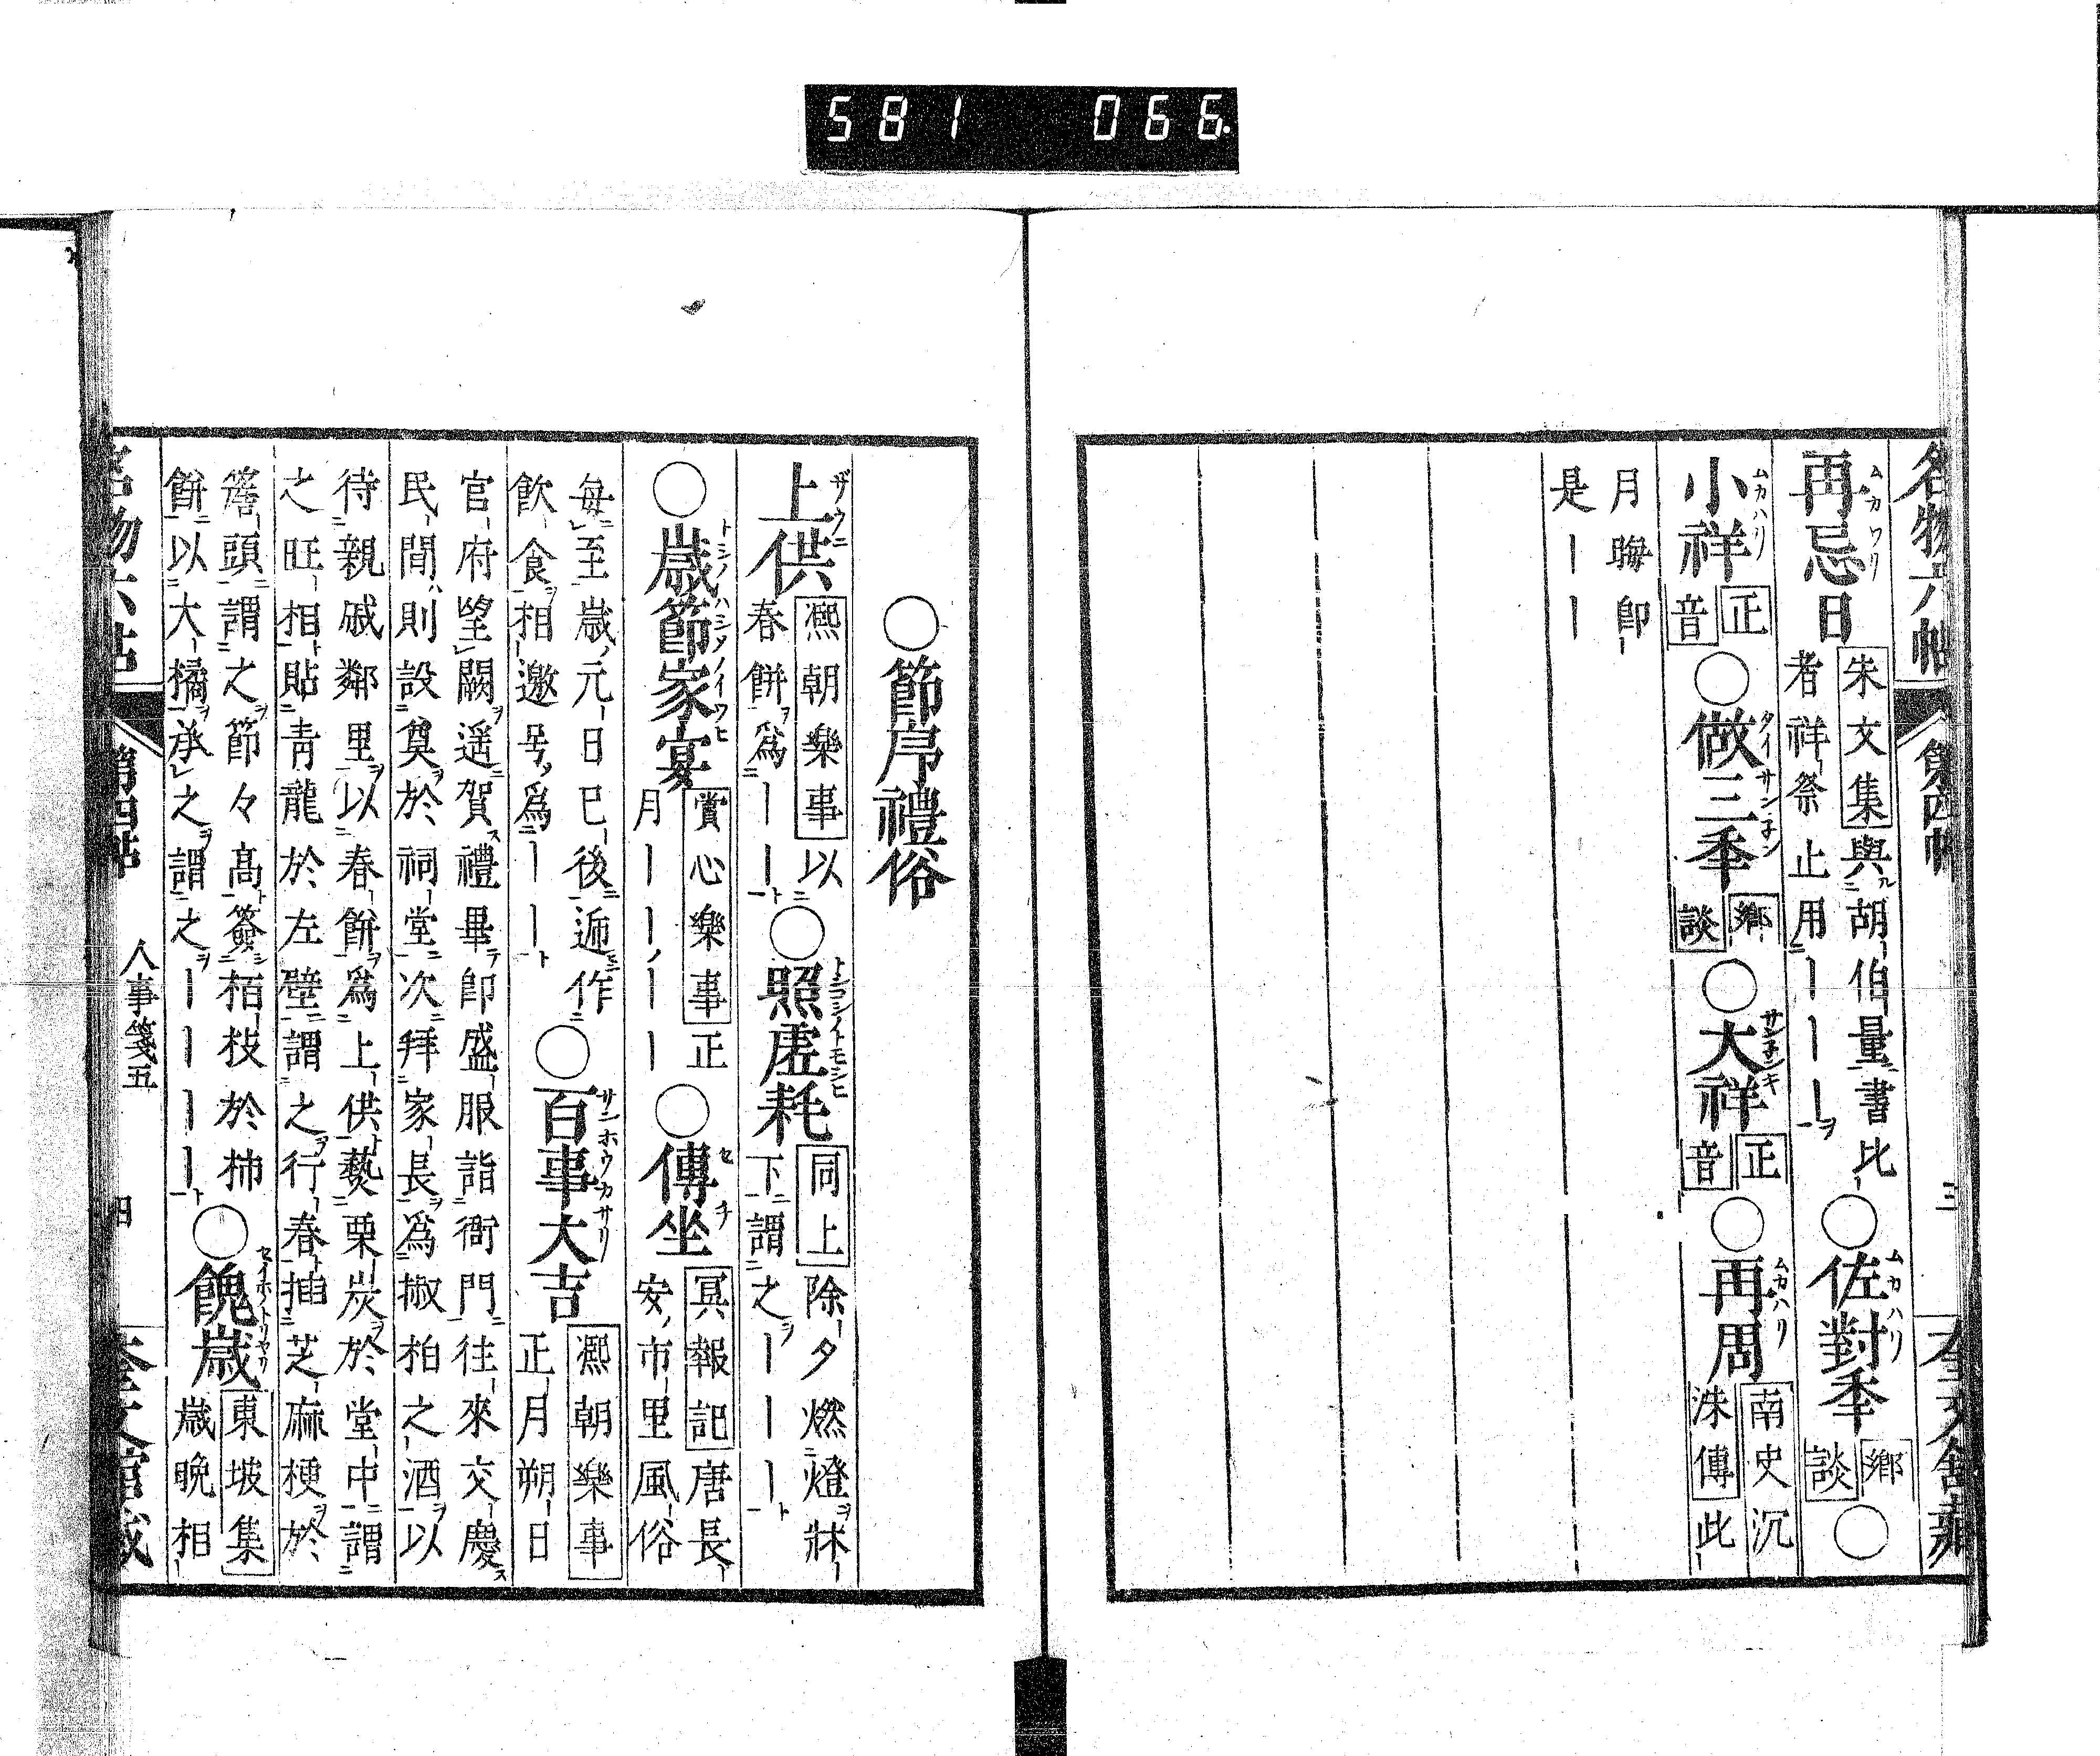 581 066
名物六帖 第四帖 三 奎文館藏
再忌日 朱文集 與胡伯量書比
者祥祭止用ーーー ○佐對季 鄉談 ○
小祥 正音 ○做三季 鄉談 ○大祥 正音 ○再周 南史沉
洙傳 此
月晦卽
是ーー
○節序禮俗
上供 熈朝樂事 以
春餅爲ーー ○照虛耗 同上 除夕燃燈牀
下謂之ーーー
○歲節家宴 賞心樂事 正
月ーーーー ○傳坐 冥報記 唐長
安市里風俗
每至歲元日已後遞作
飲食相邀号爲ーー ○百事大吉 熈朝樂事
正月朔日
官府望闕遥賀禮畢卽盛服詣衙門往來交慶
民間則設奠於祠堂次拜家長爲椒柏之酒以
待親戚鄰里以春餅爲上供爇栗炭於堂中謂
之旺相貼青龍於左壁謂之行春插芝麻梗於
簷頭謂之節々高簽栢枝於柿
餅以大橘承之謂之ーーーー ○餽歲 東坡集
歲晚相
名物六帖 第四帖 人事箋五 四 奎文館藏